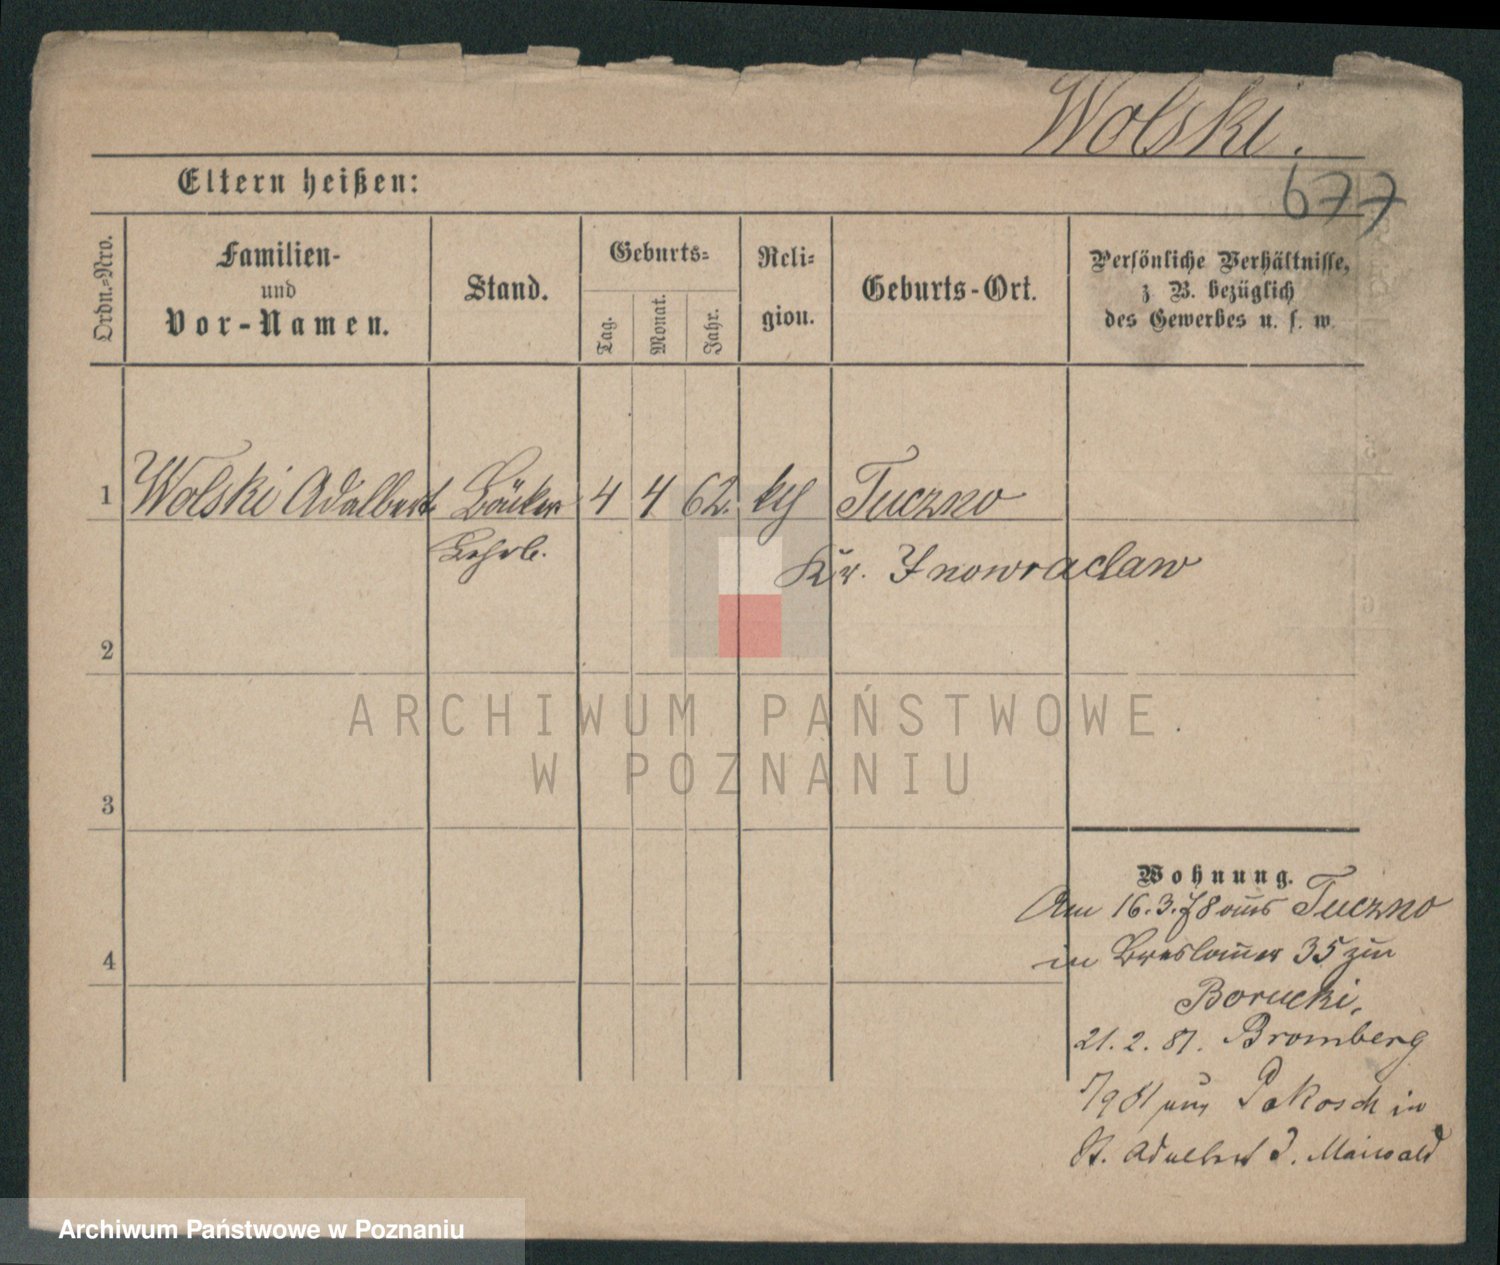 Wolski.
677
Eltern heißen:
Ordn.-Nro.
Familien-
und
Vor-Namen.
Stand.
Geburts-
Tag.
Monat.
Jahr.
Reli-
gion.
Geburts-Ort.
Persönliche Verhältnisse,
z. B. bezüglich
des Gewerbes u. s. w.
1 Wolski Adalbert Bäcker 4 4 62. Tuczno
Lehrl. Kr. Inowraclaw
2
3
4
Wohnung.
Am 16.3.78 aus Tuczno
in Breslauer 35 zu
Borucki.
21. 2. 81. Bromberg
Pakosch in
St. Adalbert 3. Maiwald
ARCHIWUM PAŃSTWOWE
W POZNANIU
Archiwum Państwowe w Poznaniu